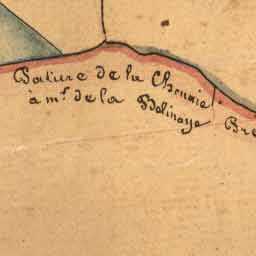 Pature de la Chenaie
à mr. de la Molinaye
Bre